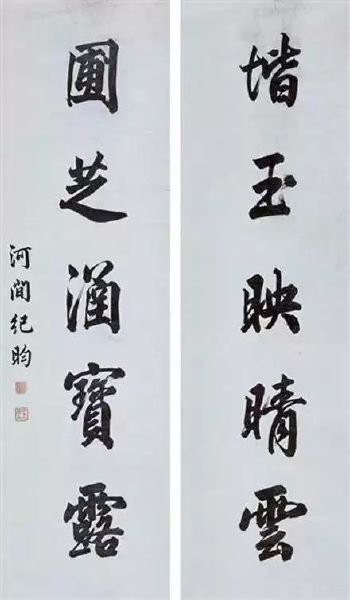 堦玉映晴雲
圃芝涵寶露
河間紀昀